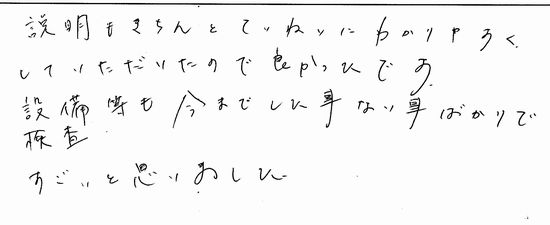 説明もきちんとていねいにわかりやすく
していただいたので良かったです
設備等も今までした事ない事ばかりで
検査
すごいと思いました